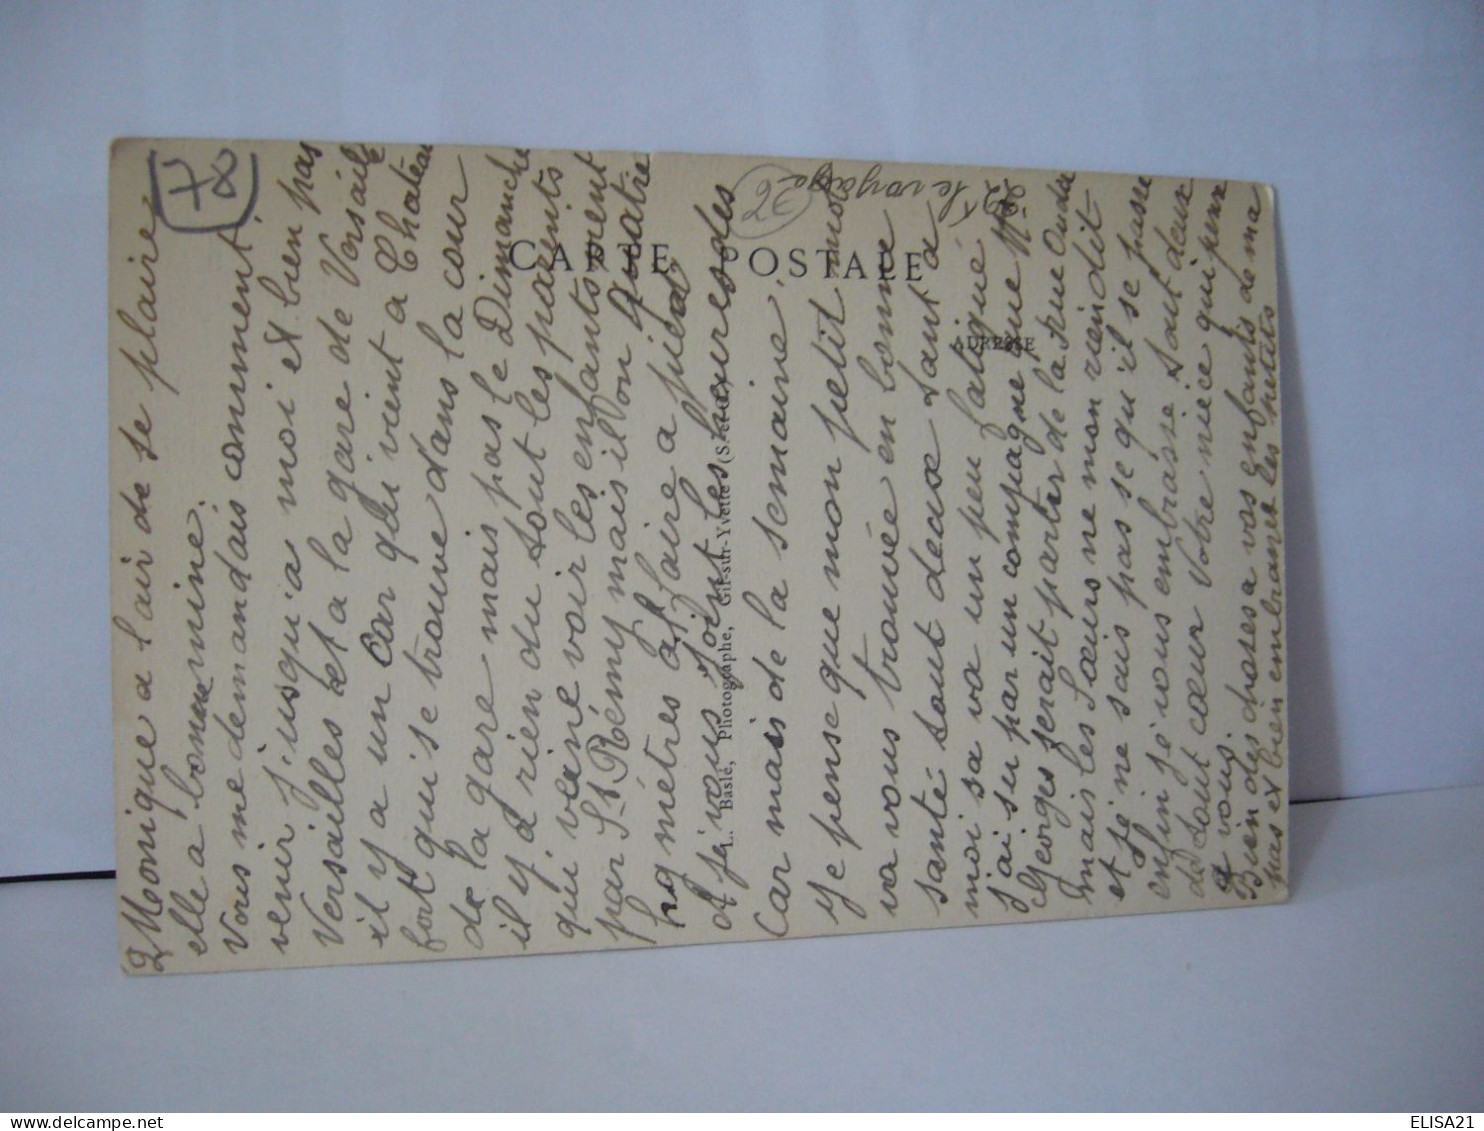 2 Monique a l'air de se plaire
elle a bonne mine.
Vous me demandais comment
venir jusqu'a moi et bien pas
Versailles et a la gare de Versaille
il y a un Car qui vient a Chateau
fort qui se trouve dans la cour
de la gare mais pas le Dimanche
il y a rien du tout les parents
qui veine voir les enfants vient
par St Rémy mais il von quatre
metres a faire a pied
A je vous joint les heures des
Car mais de la semaine.
je pense que mon petit mot
va vous trouvée en bonne
santé tout deux tant a
moi sa va un peu fatigué
j'ai su par un compagne que Mr
Georges serait parter de la rue Ouda
mais les Sœurs ne mon rien dit
et je ne sais pas se qu'il se passe
enfin je vous embrasse tout deux
de tout cœur Votre niece qui pense
a vous.
Bien des choses a vos enfants de ma
pas et bien embrasser les petits
le voyage
22 F
CARTE POSTALE
ADRESSE
L. Baslé, Photographe, Gif-sur-Yvette (S.-et-O.)
78
26
ELISA21